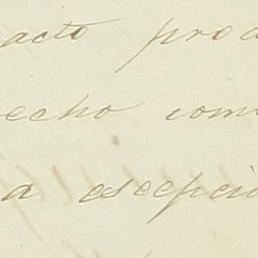 acto prod
echo com
a escepcio